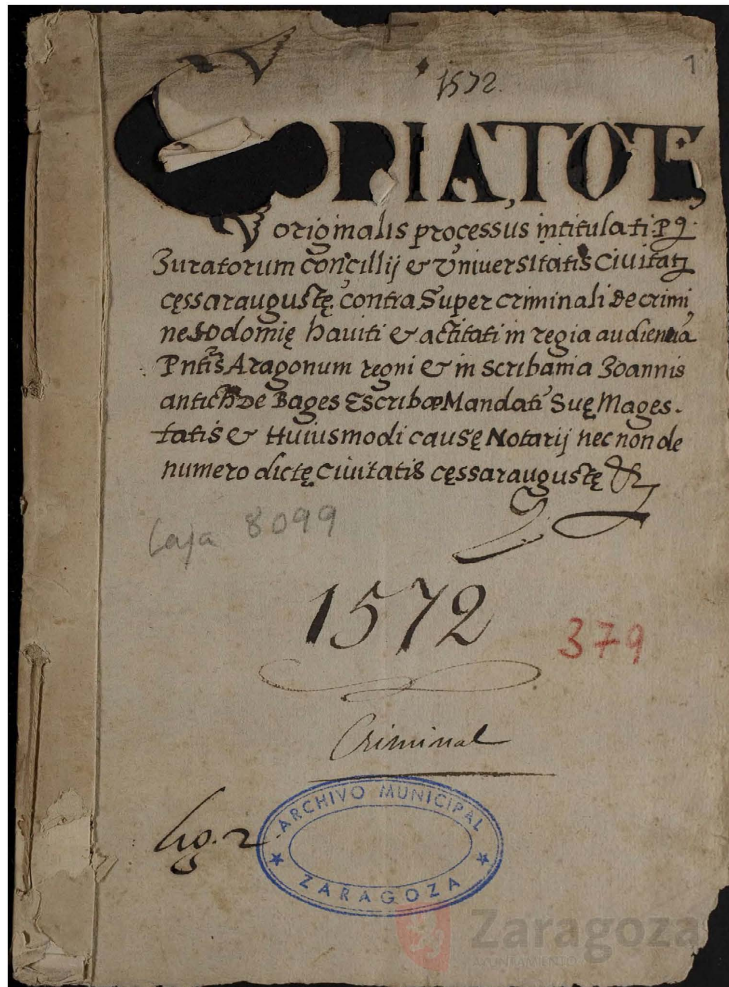 1
1572.
COPIA TOT,
originalis processus intitulati P q.
Juratorum concillij & Universitatis Civitatꝭ
cęssaraugustę. contra Super criminali De crimi
ne Sodomię haviti & actitati in regia audiencia
Pntis Aragonum regni & in scribania Joannis
antich De Bages Escribæ Mandati Suę Mages-
tatis & Huiusmodi causę Notarij nec non de
numero dictę civitatis cęssaraugustę &
Caja 8099
1572
379
Criminal
ARCHIVO MUNICIPAL
lig. 2
ZARAGOZA
Zaragoza
AYUNTAMIENTO